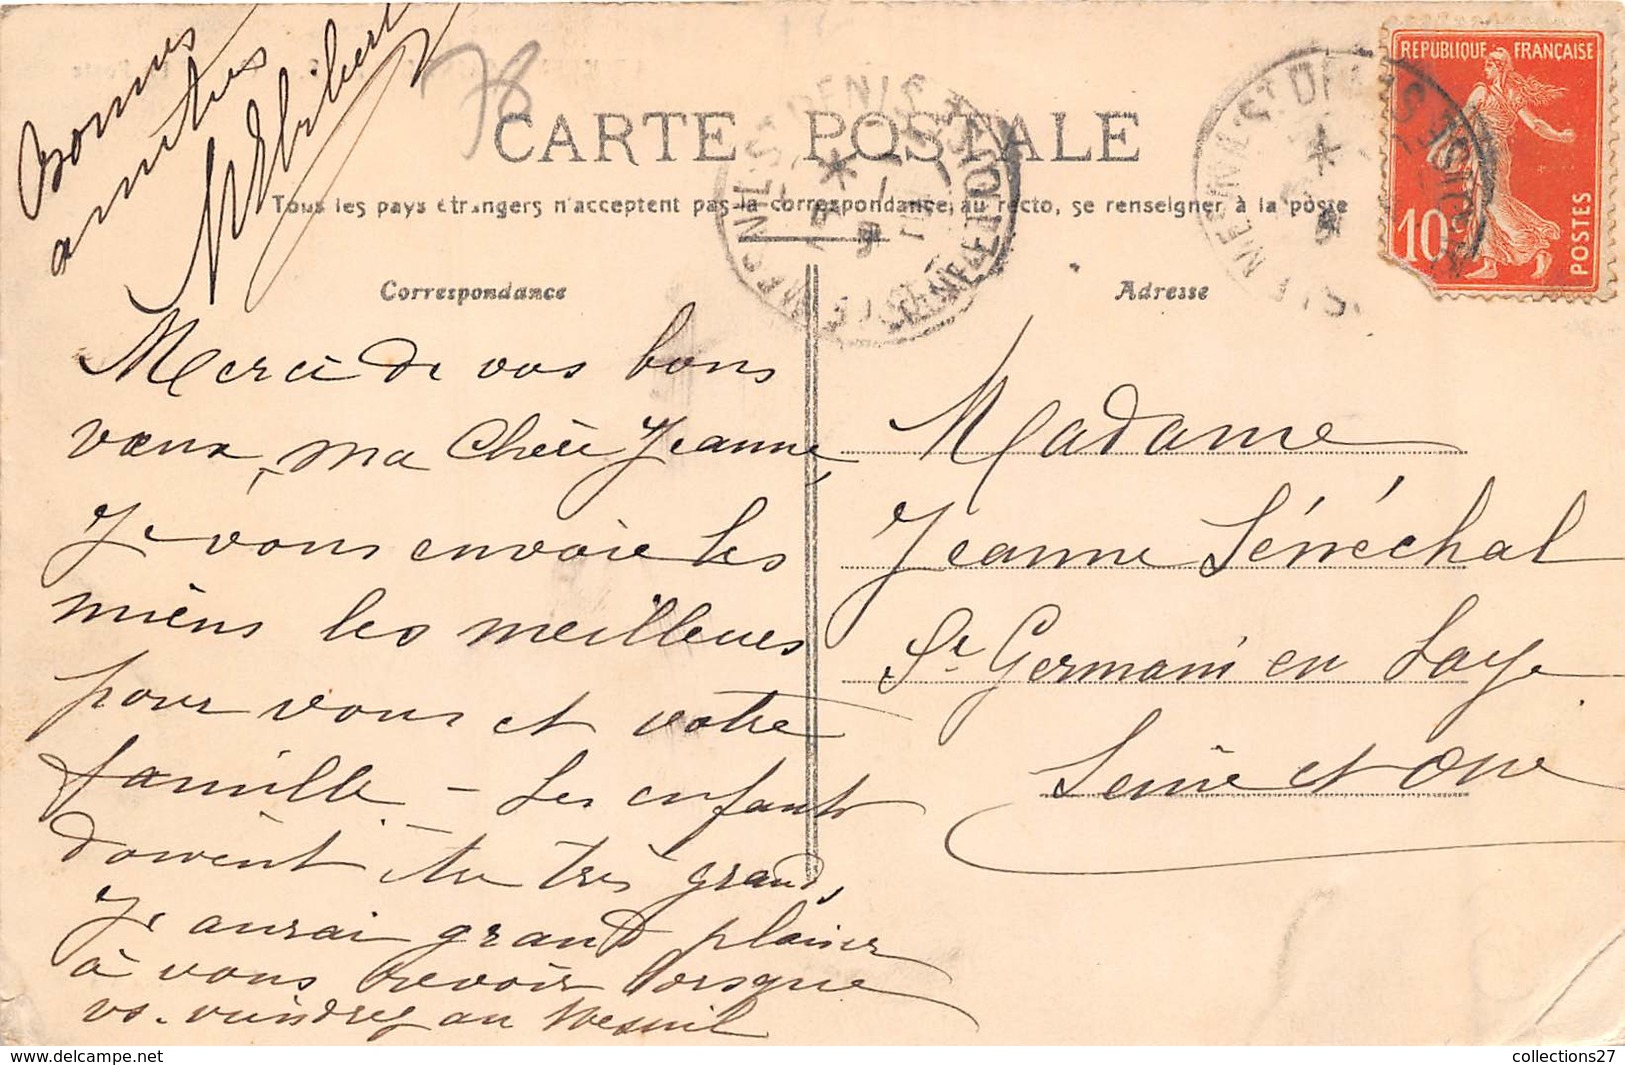 Bonnes
amitiés
CARTE POSTALE
Tous les pays étrangers n'acceptent pas la correspondance au recto, se renseigner à la poste
Correspondance
Adresse
RÉPUBLIQUE FRANÇAISE
10
POSTES
Merci de vos bons
vœux, ma Chère Jeanne,
Je vous envoie les
miens les meilleurs
pour vous et votre
famille - Les enfants
doivent être très grands,
Je aurai grand plaisir
à vous revoir lorsque
vs. viendrez au Mesnil
Madame
Jeanne Sénéchal
St Germain en Laye
Seine et Oise
collections27